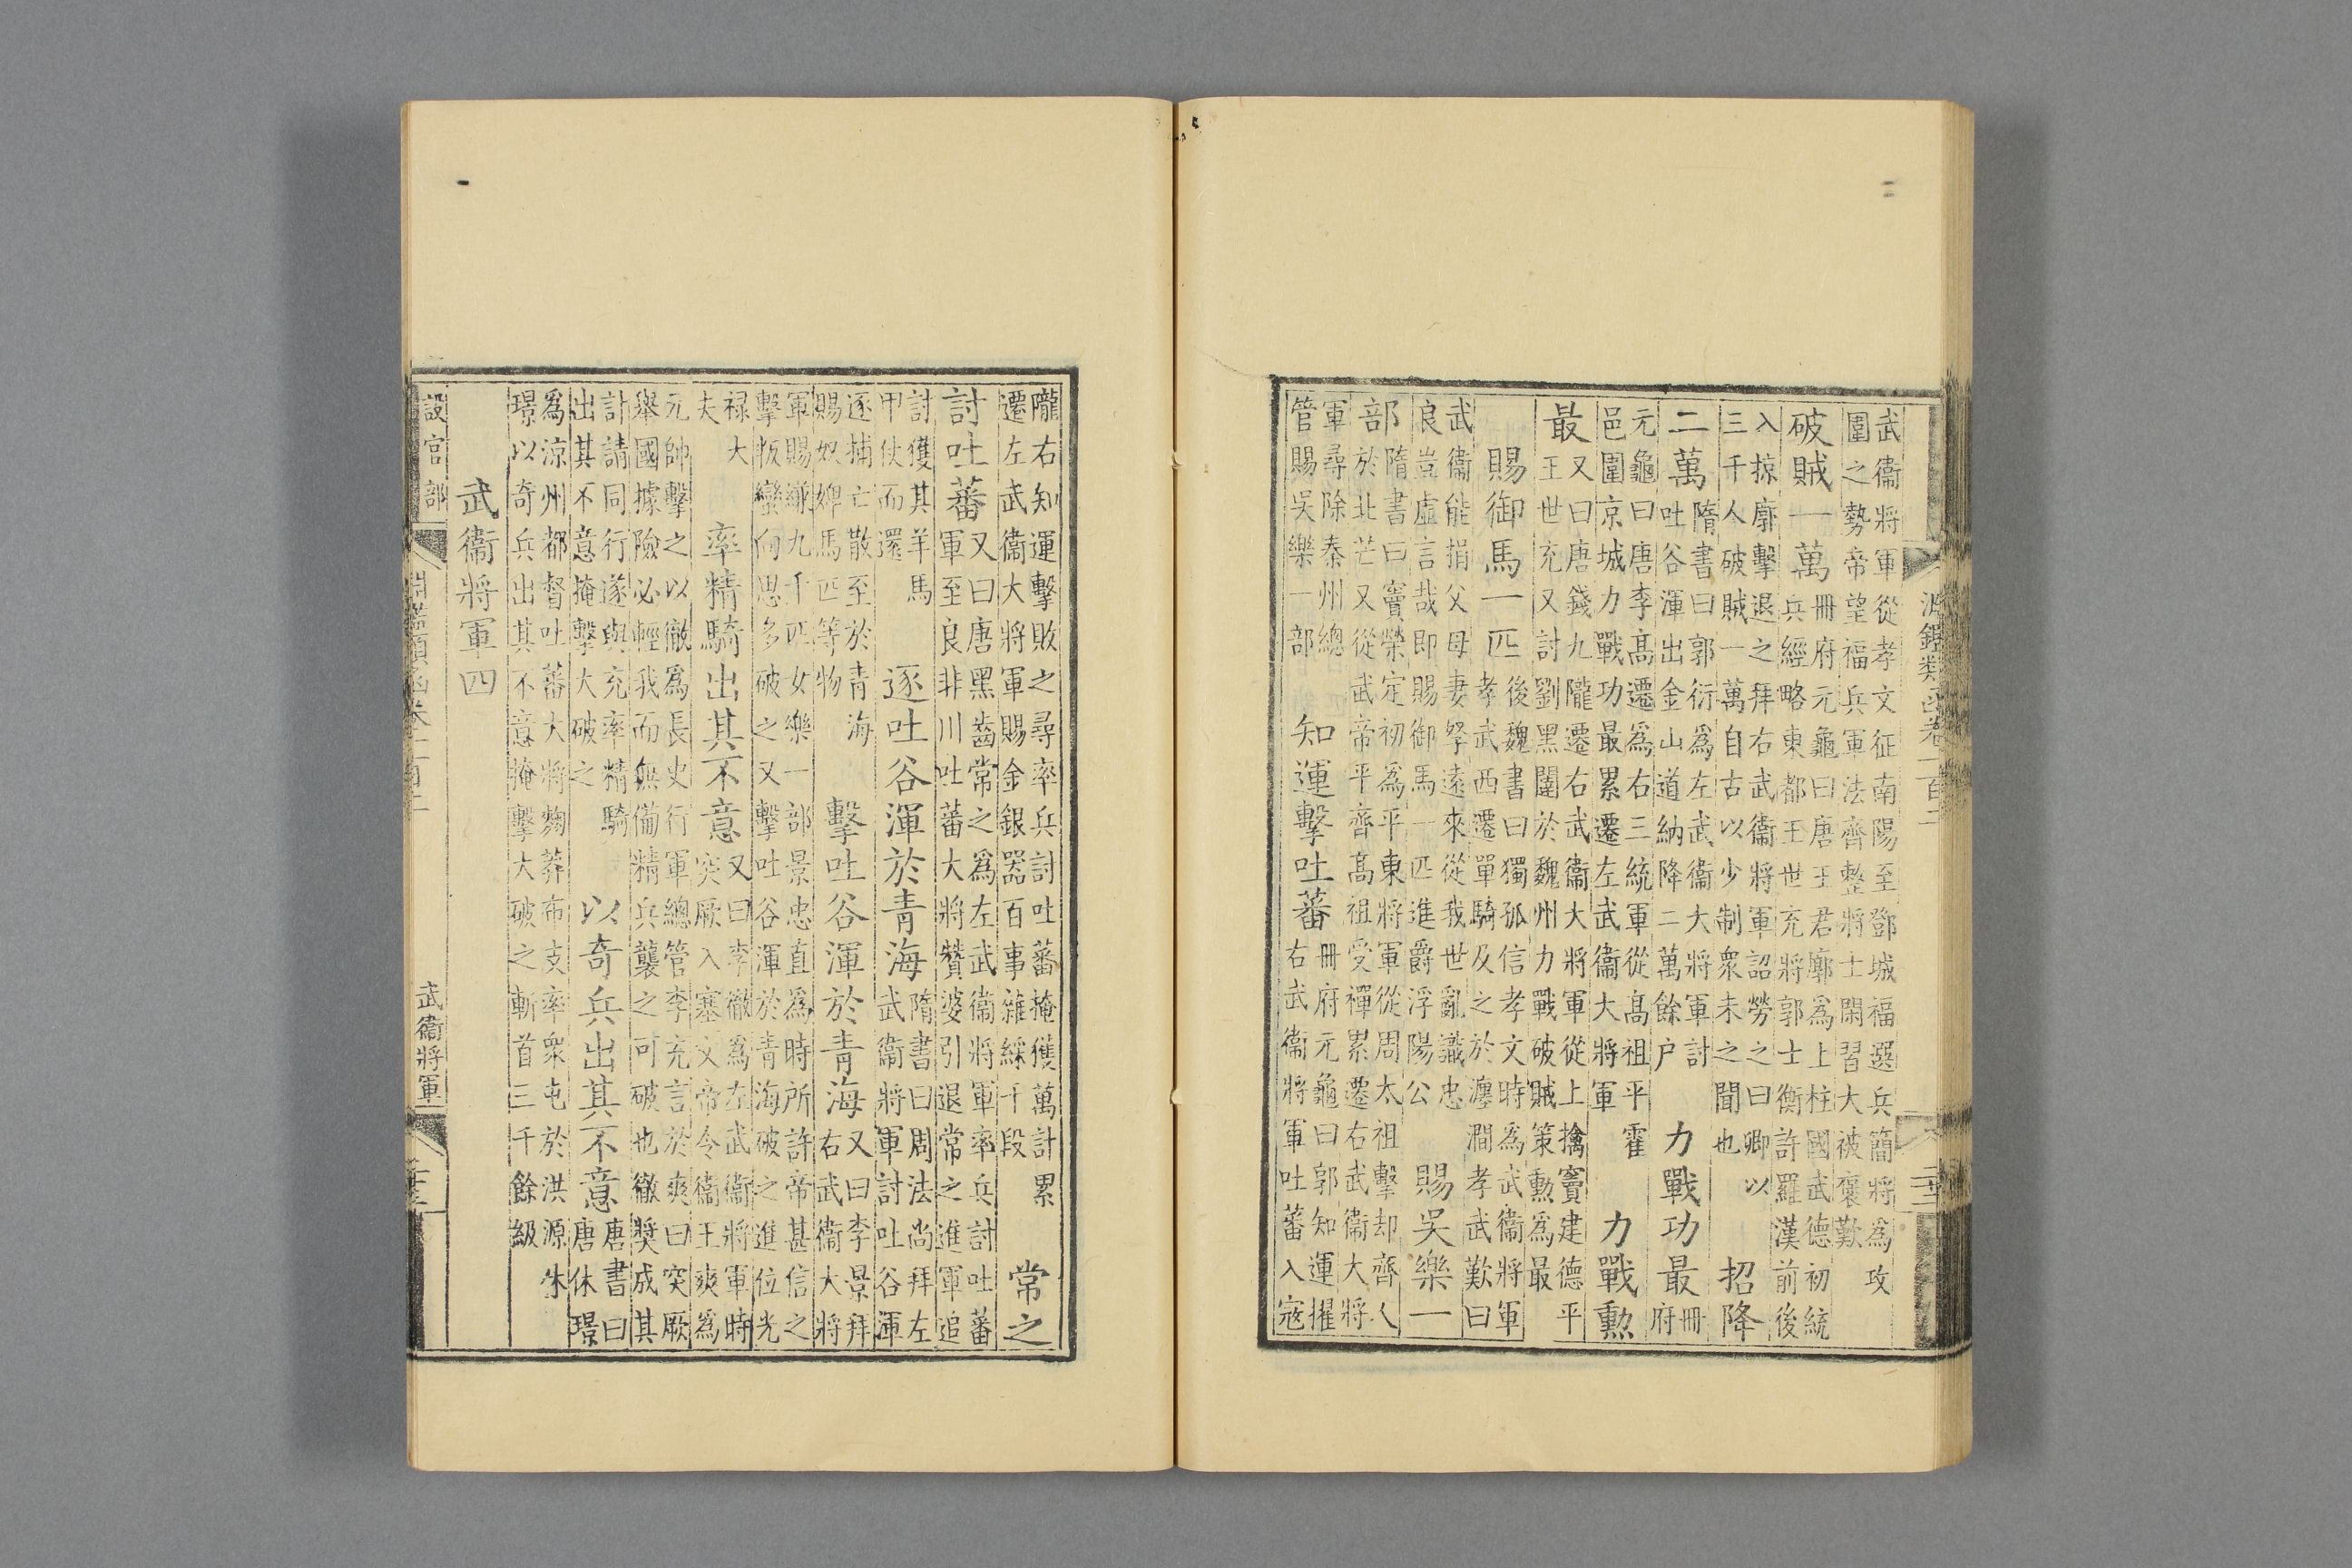 淵鑑類函卷一百二
二十二
武衞將軍從孝文征南陽至鄧城福選兵簡將爲攻
圍之勢帝望福兵軍法齊整將士閑習大被褒歎
破賊一萬
冊府元龜曰唐王君廓爲上柱國武德初統
兵經略東都王世充將郭士衡許羅漢前後
入掠廓擊退之拜右武衞將軍詔勞之曰卿以
三千人破賊一萬自古以少制衆未之聞也
招降
二萬
隋書曰郭衍爲左武衞大將軍討
吐谷渾出金山道納降二萬餘户
力戰功最
冊
府
元龜曰唐李高遷爲右三統軍從高祖平霍
邑圍京城力戰功最累遷左武衞大將軍
力戰勲
最
又曰唐錢九隴遷右武衞大將軍從上擒竇建德平
王世充又討劉黑闥於魏州力戰破賊策勲爲最
賜御馬一匹
後魏書曰獨孤信孝文時爲武衞將軍
孝武西遷單騎及之於瀍澗孝武歎曰
武衞能捐父母妻孥遠來從我世亂識忠
良豈虛言哉即賜御馬一匹進爵浮陽公
賜吳樂一
部
隋書曰竇榮定初爲平東將軍從周太祖擊却齊人
於北芒又從武帝平齊高祖受禪累遷右武衞大將
軍尋除秦州總
管賜吳樂一部
知運擊吐蕃
冊府元龜曰郭知運擢
右武衞將軍吐蕃入寇
隴右知運擊敗之尋率兵討吐蕃掩獲萬計累
遷左武衞大將軍賜金銀器百事雜綵千段
常之
討吐蕃
又曰唐黑齒常之爲左武衞將軍率兵討吐蕃
軍至良非川吐蕃大將贊婆引退常之進軍追
討獲其羊馬
甲仗而還
逐吐谷渾於青海
隋書曰周法尚拜左
武衞將軍討吐谷渾
逐捕亡散至於青海
賜奴婢馬匹等物
擊吐谷渾於青海
又曰李景拜
右武衞大將
軍賜縑九千匹女樂一部景忠直爲時所許帝甚信之
擊叛蠻向思多破之又擊吐谷渾於青海破之進位光
禄大
夫
率精騎出其不意
又曰李徹爲左武衞將軍時
突厥入塞文帝令衞王爽爲
元帥擊之以徹爲長史行軍總管李充言於爽曰突厥
舉國據險必輕我而無備精兵襲之可破也徹奬成其
計請同行遂與充率精騎
出其不意掩擊大破之
以奇兵出其不意
唐書曰
唐休璟
爲涼州都督吐蕃大將麴莽布支率衆屯於洪源休
璟以奇兵出其不意掩擊大破之斬首三千餘級
武衞將軍四
設官部
淵鑑類函卷一百二
武衞將軍
二十三